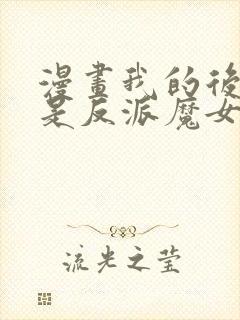 漫畫我的後
是反派魔女
流光之莹